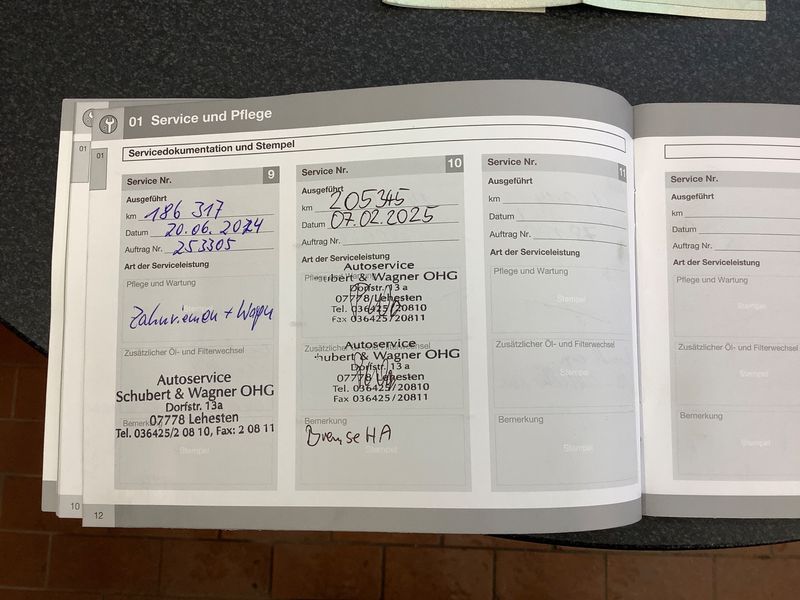 01 Service und Pflege
01
01
Servicedokumentation und Stempel
Service Nr. 9
Ausgeführt
km 186 317
Datum 20.06.2024
Auftrag Nr. 253305
Art der Serviceleistung
Pflege und Wartung
Zahnriemen + Wapu
Zusätzlicher Öl- und Filterwechsel
Autoservice
Schubert & Wagner OHG
Dorfstr. 13a
07778 Lehesten
Tel. 036425/2 08 10, Fax: 2 08 11
Stempel
Service Nr. 10
Ausgeführt
km 205345
Datum 07.02.2025
Auftrag Nr.
Art der Serviceleistung
Pflege und Wartung
Autoservice
hubert & Wagner OHG
Dorfstr. 13 a
07778 Lehesten
Tel. 036425/20810
Fax 036425/20811
Zusätzlicher Öl- und Filterwechsel
Autoservice
hubert & Wagner OHG
Dorfstr. 13 a
07778 Lehesten
Tel. 036425/20810
Fax 036425/20811
Bemerkung
Bremse HA
Stempel
Service Nr. 11
Ausgeführt
km
Datum
Auftrag Nr.
Art der Serviceleistung
Pflege und Wartung
Stempel
Zusätzlicher Öl- und Filterwechsel
Stempel
Bemerkung
Stempel
Service Nr.
Ausgeführt
km
Datum
Auftrag Nr.
Art der Serviceleistung
Pflege und Wartung
Stempel
Zusätzlicher Öl- und Filterwechsel
Stempel
Bemerkung
Stempel
10
12